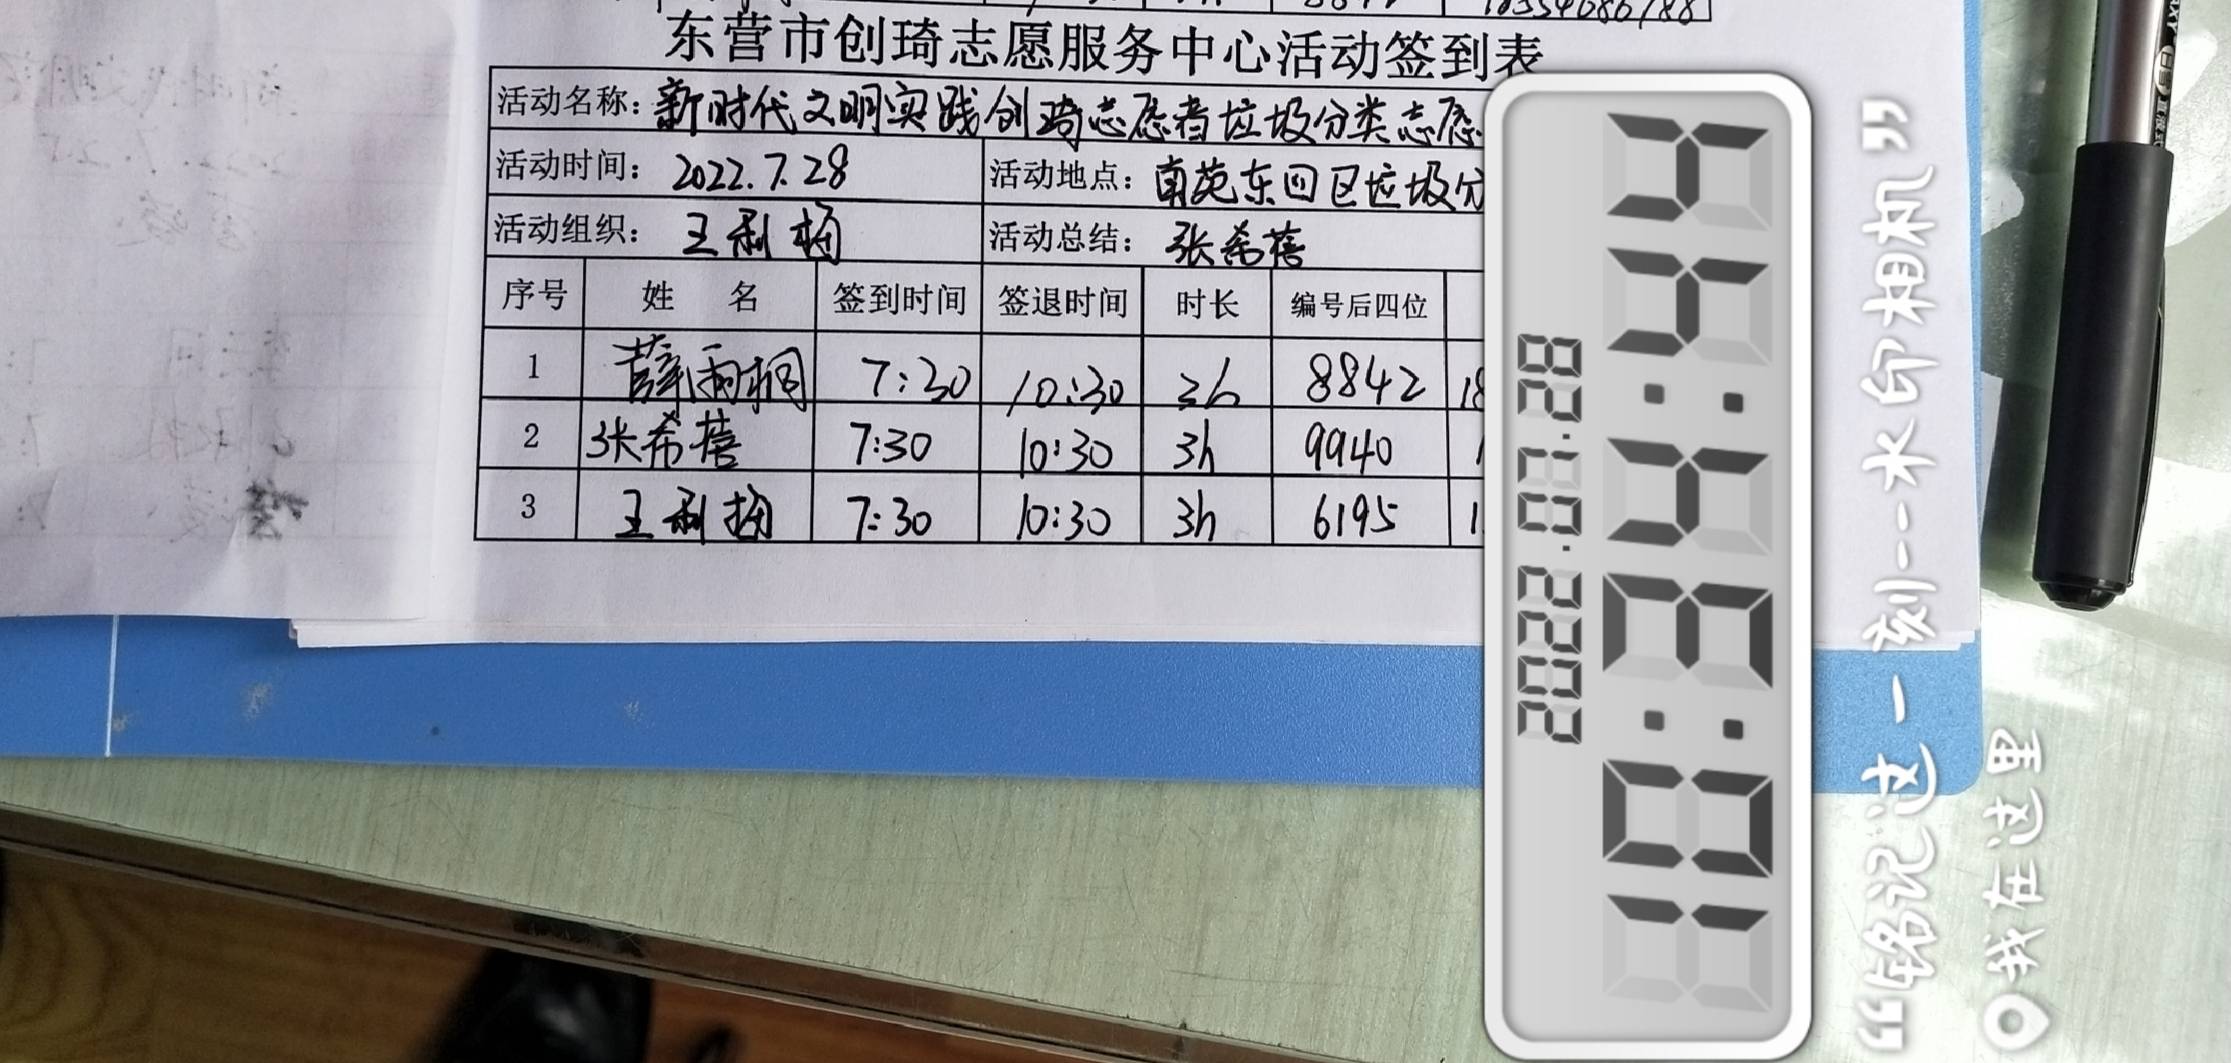 东营市创琦志愿服务中心活动签到表
活动名称：新时代文明实践创琦志愿者垃圾分类志愿
活动时间：2022.7.28 活动地点：南苑东四区垃圾分
活动组织：王利梅 活动总结：张希蓓
序号 姓 名 签到时间 签退时间 时长 编号后四位
1 薛雨桐 7:30 10:30 3h 8842 18
2 张希蓓 7:30 10:30 3h 9940
3 王利梅 7:30 10:30 3h 6195
10:34:44
2022.07.28
“铭记这一刻--水印相机”
我在这里